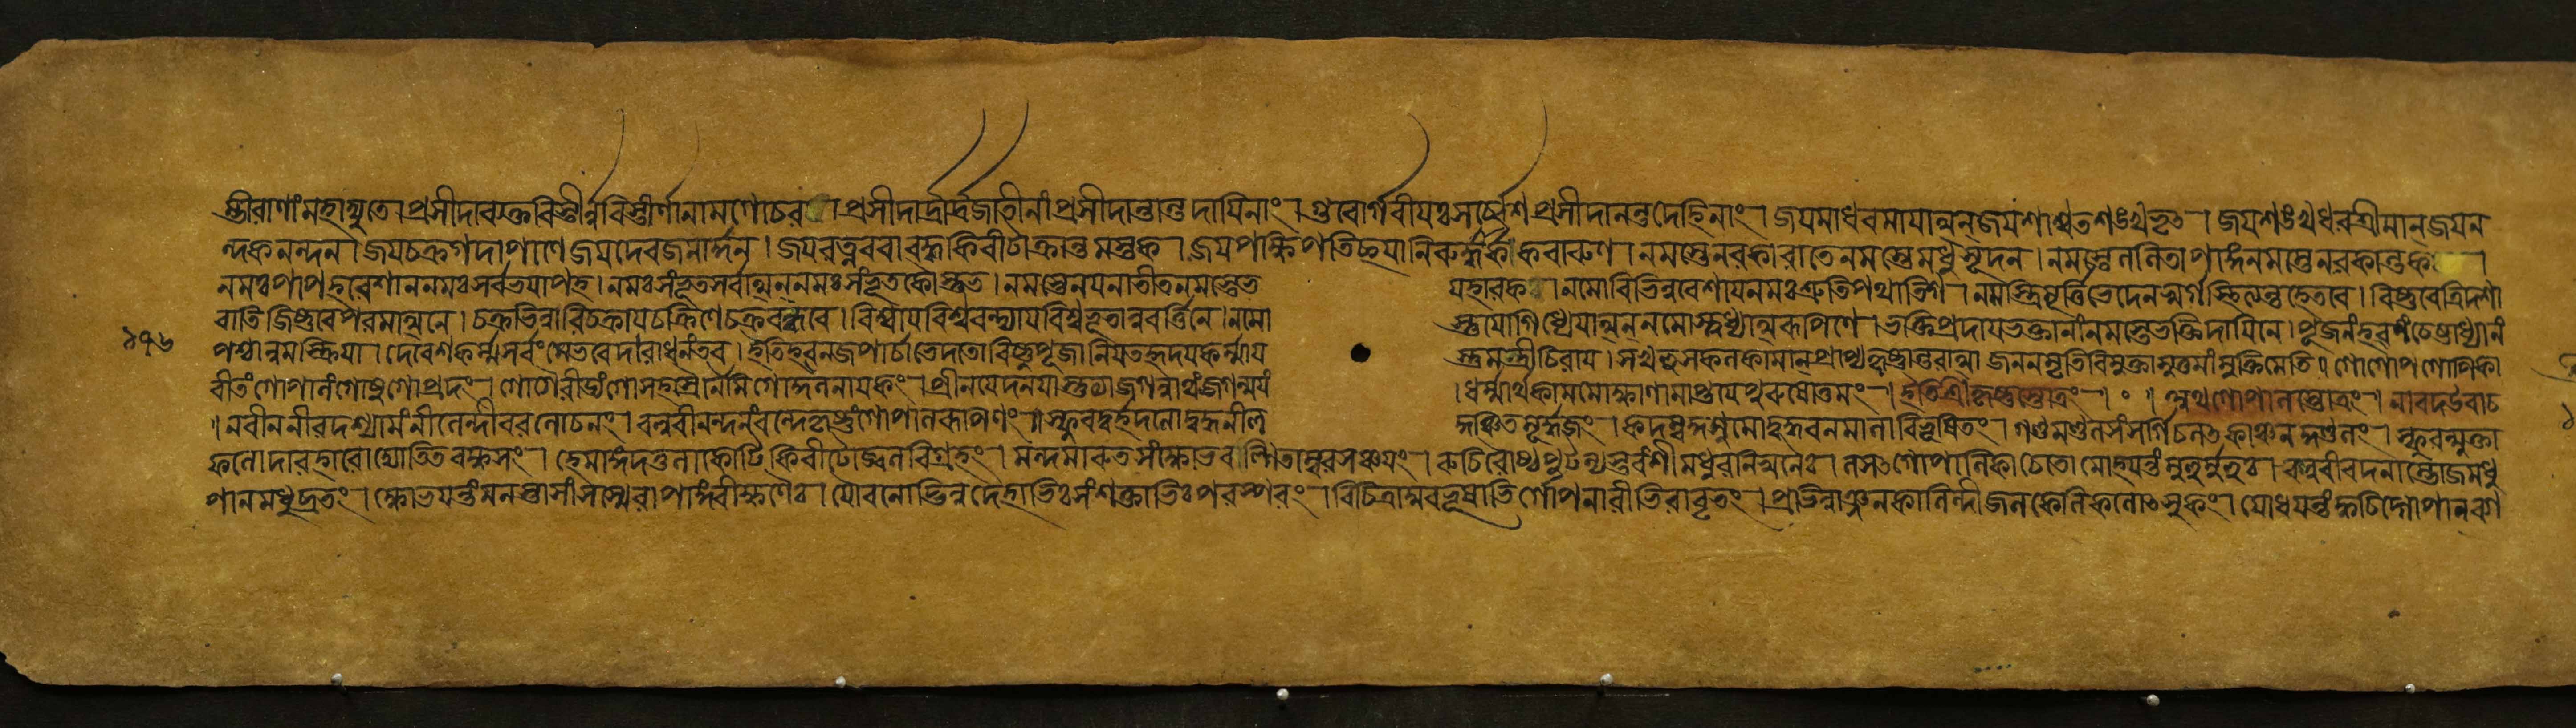 স্ত্রীরাণাং মহাদ্যুতে। প্রসীদাব্যক্তবিস্তীর্ণবিস্তীর্ণানামগোচর । প্রসীদার্দ্রার্দ্রজাতীনাং প্রসীদান্তান্তদায়িনাং। গুরোর্গরীয়ঃ সর্ব্বেশ প্রসীদানন্তদেহিনাং। জয়মাধবমায়াত্মন্ জয়শাশ্বতশঙ্খভৃৎ। জয়শঙ্খধরশ্রীমান্ জয়ন
ন্দকনন্দন। জয়চক্রগদাপাণে জয়দেবজনার্দ্দন। জয়রত্নবরাবদ্ধকিরীটাক্রান্তমস্তক। জয়পক্ষিপতিচ্ছায়ানিরুদ্ধার্ককরারুণ। নমস্তেনরকারাতে নমস্তে মধুসূদন। নমস্তেললিতাপাঙ্গ নমস্তেনরকান্তক ।
নমঃ পাপহরেশাননমঃ সর্বভয়াপহ। নমঃ সংভূতসর্বাত্মন্নমঃ সংভৃতকৌস্তুভ। নমস্তেনয়নাতীত নমস্তেভ যহারক । নমো বিভিন্নবেশায় নমঃ শ্রুতিপথাতিগ। নমস্ত্রিমূর্ত্তিভেদেন স্বর্গস্থিত্যন্তহেতবে। বিষ্ণবেত্রিদশা
রাতি জিষ্ণবেপরমাত্মনে। চক্রভিন্নারিচক্রায় চক্রিণে চক্রবন্ধবে। বিশ্বায়বিশ্ববন্দ্যায় বিশ্বভূতানুবর্ত্তিনে। নমো স্তুযোগিধ্যেয়াত্মন্ নমোস্ত্বধ্যাত্মরূপিণে। ভক্তিপ্রদায়ভক্তানাং নমস্তেভক্তিদায়িনে। পূজনং হবনং চেজ্যাধ্যানং
১৭৬ পশ্চান্নমস্ক্রিয়া। দেবেশকর্ম্মসর্বং মেভবেদারাধনং তব। ইতিহবনজপার্চাভেদতো বিষ্ণুপূজানিয়তহৃদয়কর্ম্মায় স্তুমন্ত্রীচিরায়। সখলুসকলকামান্ প্রাপ্য কৃষ্ণান্তরাত্মা জননমৃতিবিমুক্তোমুত্তমাং মুক্তিমেতি। গোগোপগোপিকা
বীতং গোপালং গোষুগোপ্রদং। গোপৈরীড্যং গোসহস্রৈর্নৌমি গোকুলনায়কং। প্রীণয়েদনয়াস্তুত্যা জগন্নাথং জগন্ময়ং। ধর্ম্মার্থকামমোক্ষাণামাপ্তয়ে পুরুষোত্তমং। ইতিশ্রীকৃষ্ণস্তোত্রং। ॰। অথ গোপালস্তোত্রং। নারদউবাচ
। নবীননীরদশ্যামং নীলেন্দীবরলোচনং। বল্লবীনন্দনং বন্দে কৃষ্ণং গোপালরূপিণং। স্ফুরদ্বর্হদলোদ্বদ্ধনীল কুঞ্চিতমূর্দ্ধজং। কদম্বকুসুমোদ্বদ্ধবনমালাবিভূষিতং। গণ্ডমণ্ডলসংসর্গিচলৎকাঞ্চনকুণ্ডলং। স্থূলমুক্তা
ফলোদারহারোদ্যোতিতবক্ষসং। হেমাঙ্গদতুলাকোটিকিরীটোজ্জ্বলবিগ্রহং। মন্দমারুতসংক্ষোভবল্গিতাম্বরসঞ্চয়ং। রুচিরৌষ্ঠপুটন্যস্তবংশীমধুরনিস্বনৈঃ। লসৎগোপালিকাচেতো মোহয়ন্তং মুহুর্মুহুঃ। বল্লবীবদনাম্ভোজমধু
পানমধুব্রতং। ক্ষোভয়ন্তং মনস্তাসাং সস্মেরাপাঙ্গবীক্ষণৈঃ। যৌবনোদ্ভিন্নদেহাভিঃ সংসক্তাভিঃ পরস্পরং। বিচিত্রাম্বরভূষাভির্গোপনারীভিরাবৃতং। প্রভিন্নাঞ্জনকালিন্দীজলকেলিকলোৎসুকং। যোধয়ন্তং ক্বচিদ্গোপান্ ব্যা